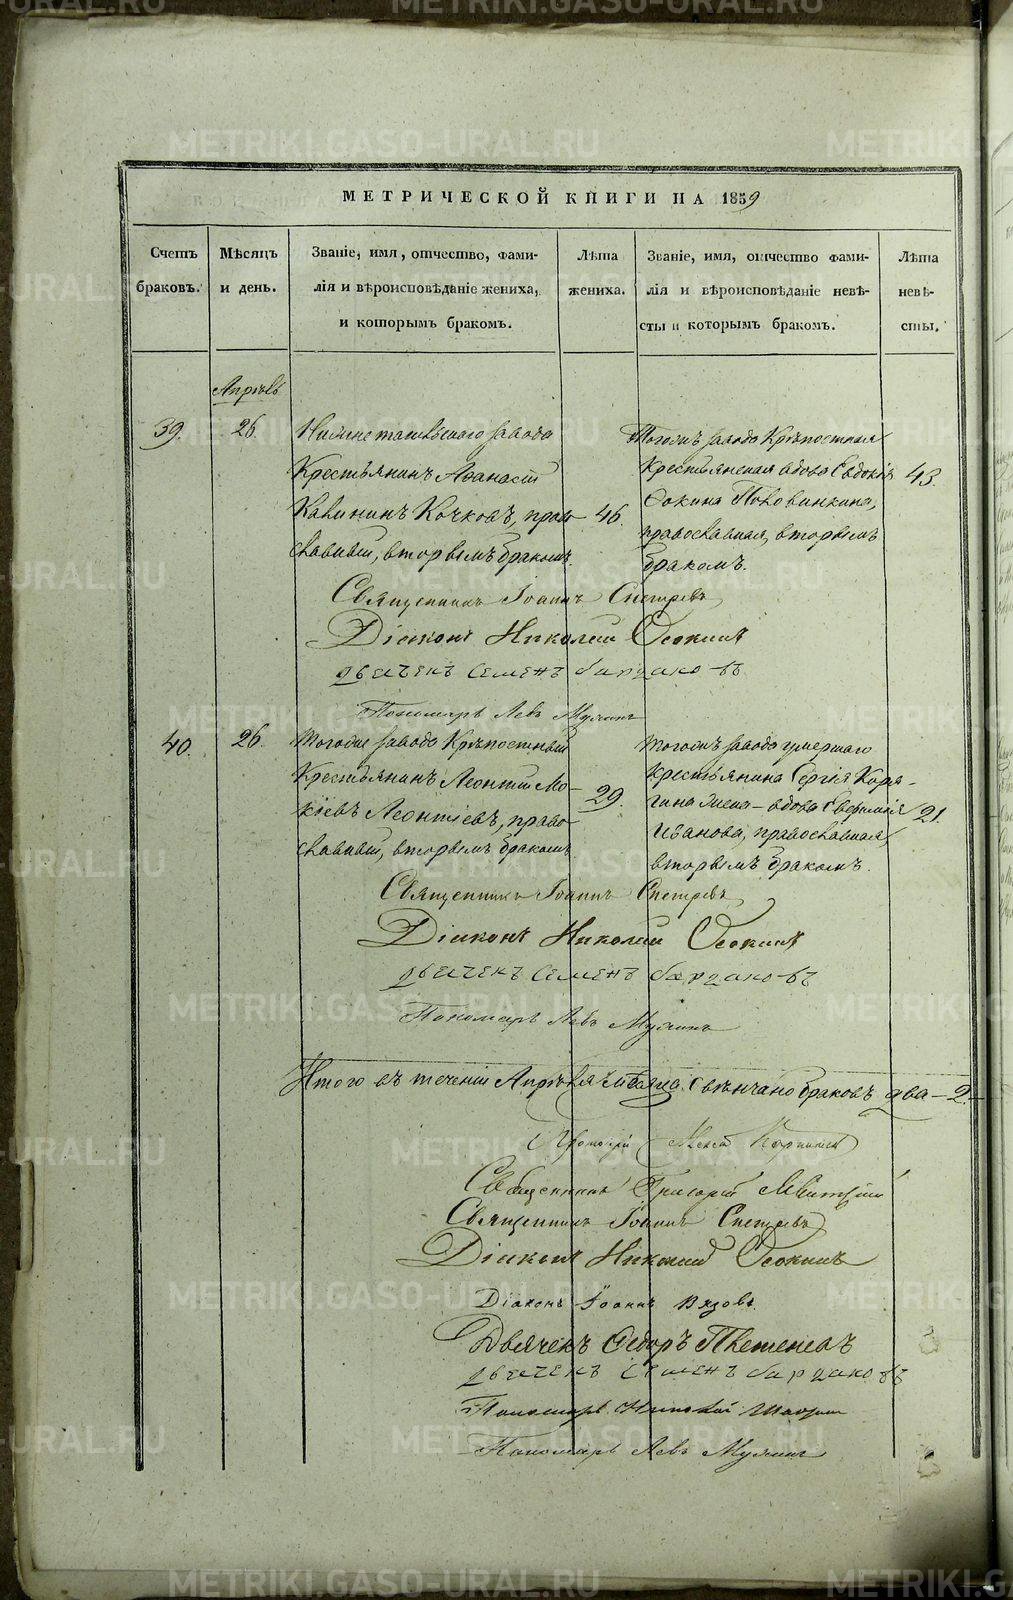 МЕТРИЧЕСКОЙ КНИГИ НА 1859
Счетъ браковъ.
Мѣсяцъ и день.
Званіе, имя, отчество, фами-
лія и вѣроисповѣданіе жениха,
и которымъ бракомъ.
Лѣта жениха.
Званіе, имя, отчество фами-
лія и вѣроисповѣданіе невѣ-
сты и которымъ бракомъ.
Лѣта невѣ-
сты.
Апрѣль
39.
26.
завода
Крестьянинъ Аѳанасій
Калининъ Кочковъ, право-
славный, вторымъ бракомъ.
46.
Тогожъ завода Крѣпостная
Крестьянская вдова Евдокія
Фокина Половинкина,
православная, вторымъ
бракомъ.
43.
Священникъ Іоаннъ
Діаконъ Николай Осокинъ
Дьячекъ Семенъ Бардаковъ
Пономарь Левъ
40.
26.
Тогоже завода Крѣпостный
Крестьянинъ Леонтій Мо-
кіевъ Леонтіевъ, право-
славный, вторымъ бракомъ
29.
Тогожъ завода умершаго
Крестьянина Сергія Каря-
гина жена - вдова
Иванова, православная,
вторымъ бракомъ.
21.
Священникъ Іоаннъ
Діаконъ Николай Осокинъ
Дьячекъ Семенъ Бардаковъ
Пономарь Левъ
Итого въ теченіи Апрѣля мѣсяца свѣнчано браковъ два - 2. -
Протоіерей
Священникъ Григорій
Священникъ Іоаннъ
Діаконъ Николай Осокинъ
Діаконъ Іоаннъ Вязовъ.
Дьячекъ Ѳедоръ
Дьячекъ Семенъ Бардаковъ
Пономарь Николай
Пономарь Левъ
METRIKI.GASO-URAL.RU